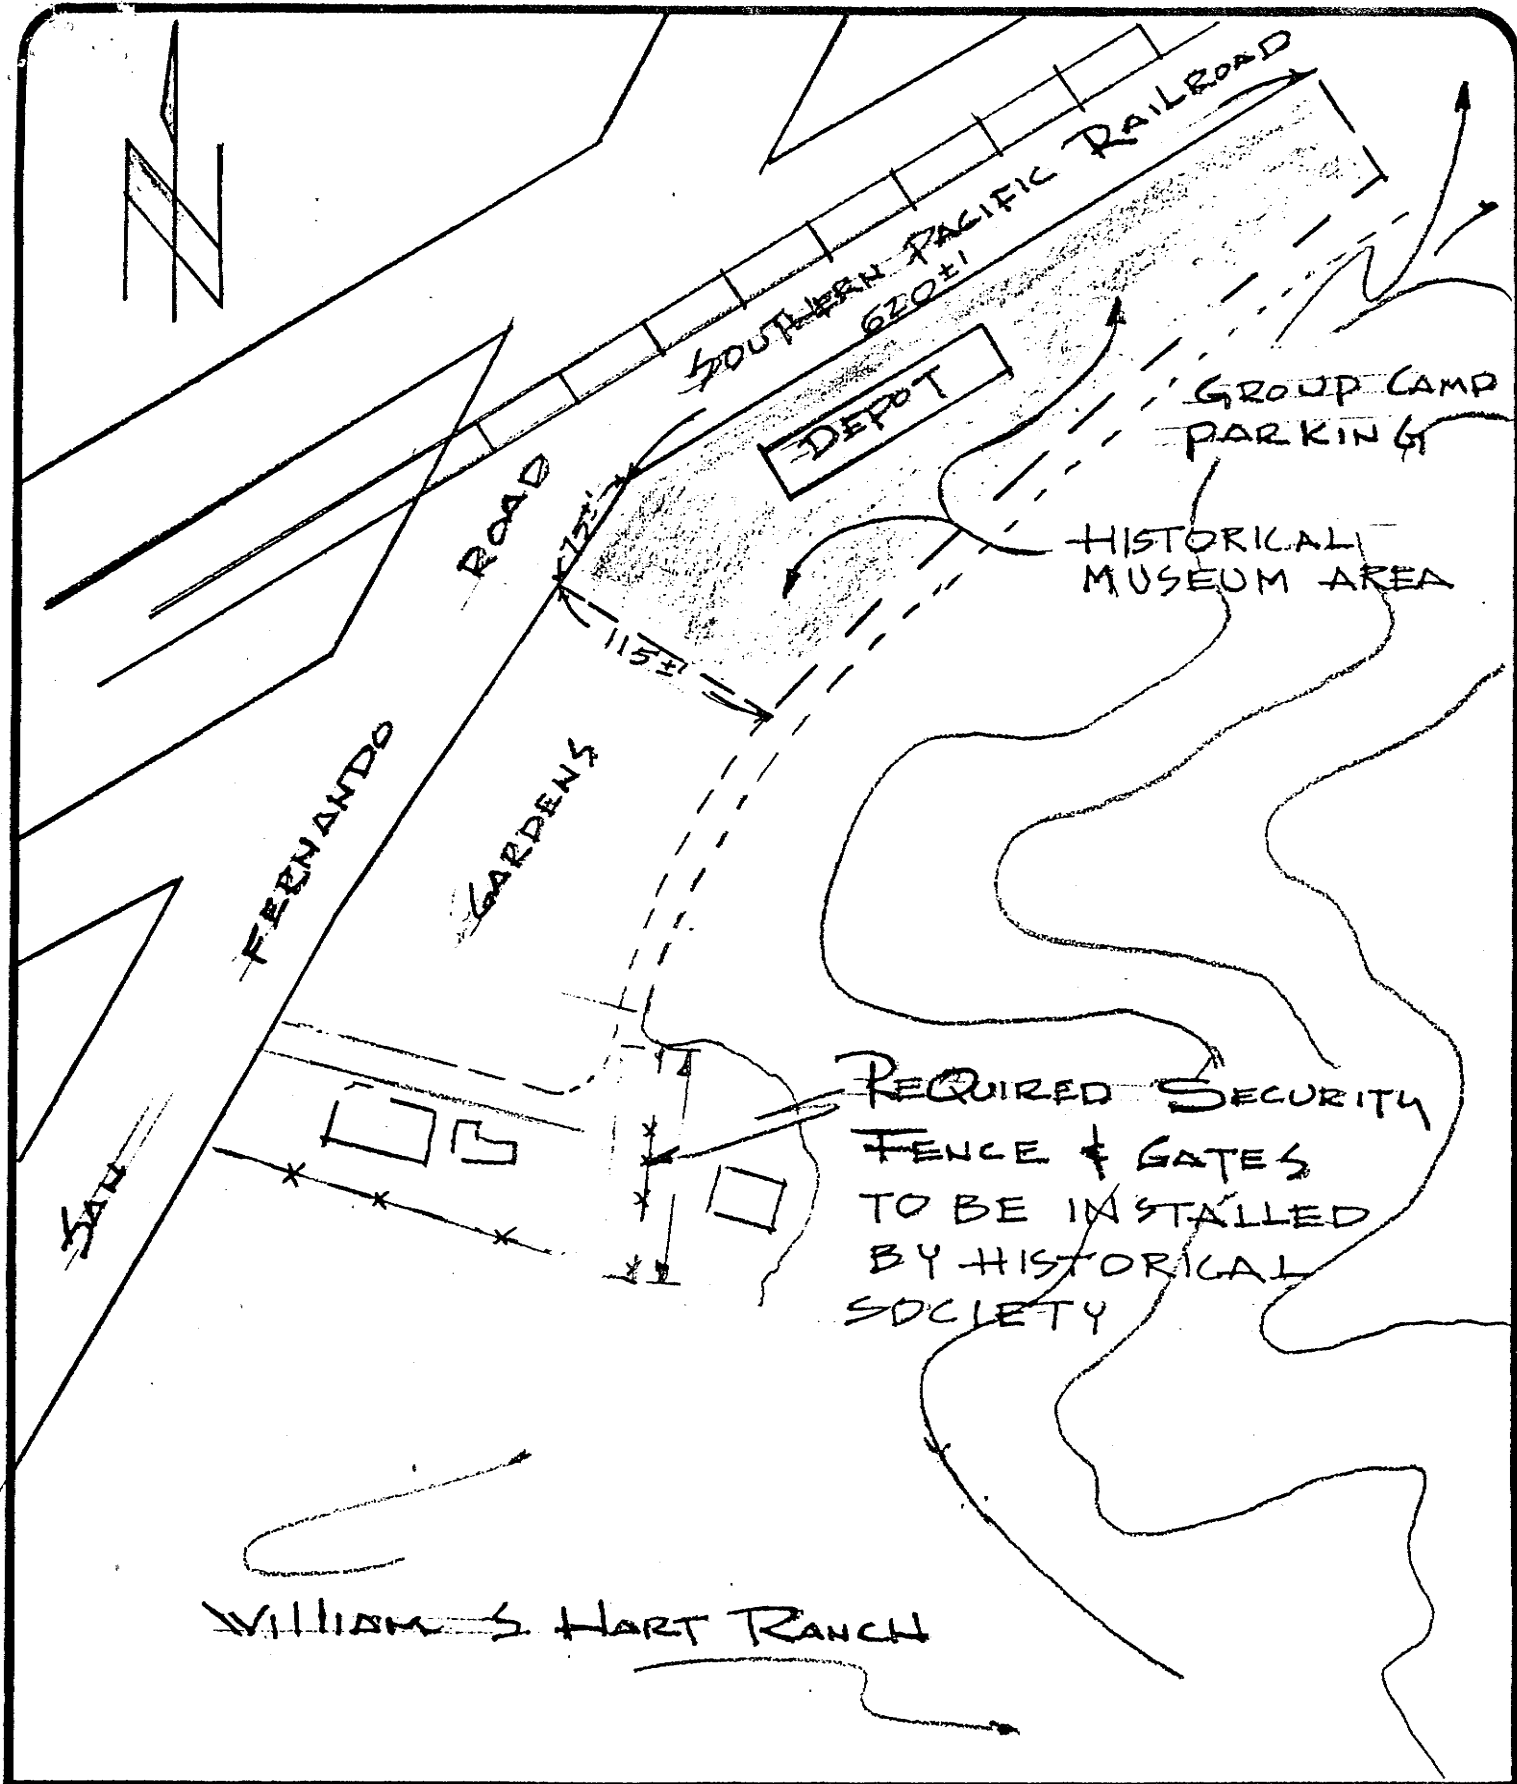 N
SOUTHERN PACIFIC RAILROAD
620±'
DEPOT
GROUP CAMP
PARKING
ROAD
75±'
HISTORICAL
MUSEUM AREA
115±'
FERNANDO
GARDENS
REQUIRED SECURITY
FENCE & GATES
TO BE INSTALLED
BY HISTORICAL
SOCIETY
SAN
WILLIAM S HART RANCH